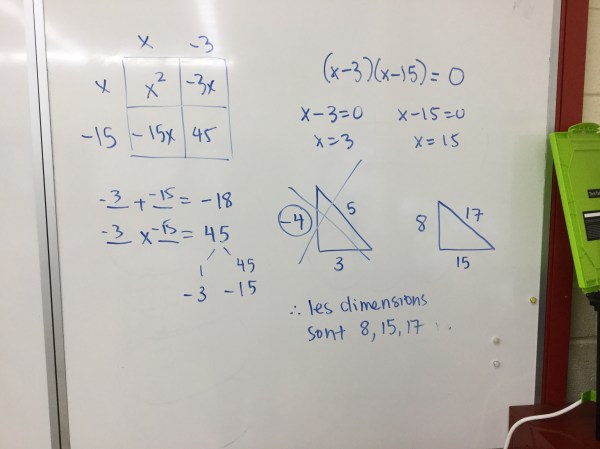 x -3
x x² -3x
-15 -15x 45
-3 + -15 = -18
-3 x -15 = 45
1 45
-3 -15
(x-3)(x-15)=0
x-3=0 x-15=0
x=3 x=15
-4 5
3
8 17
15
∴ les dimensions
sont 8, 15, 17